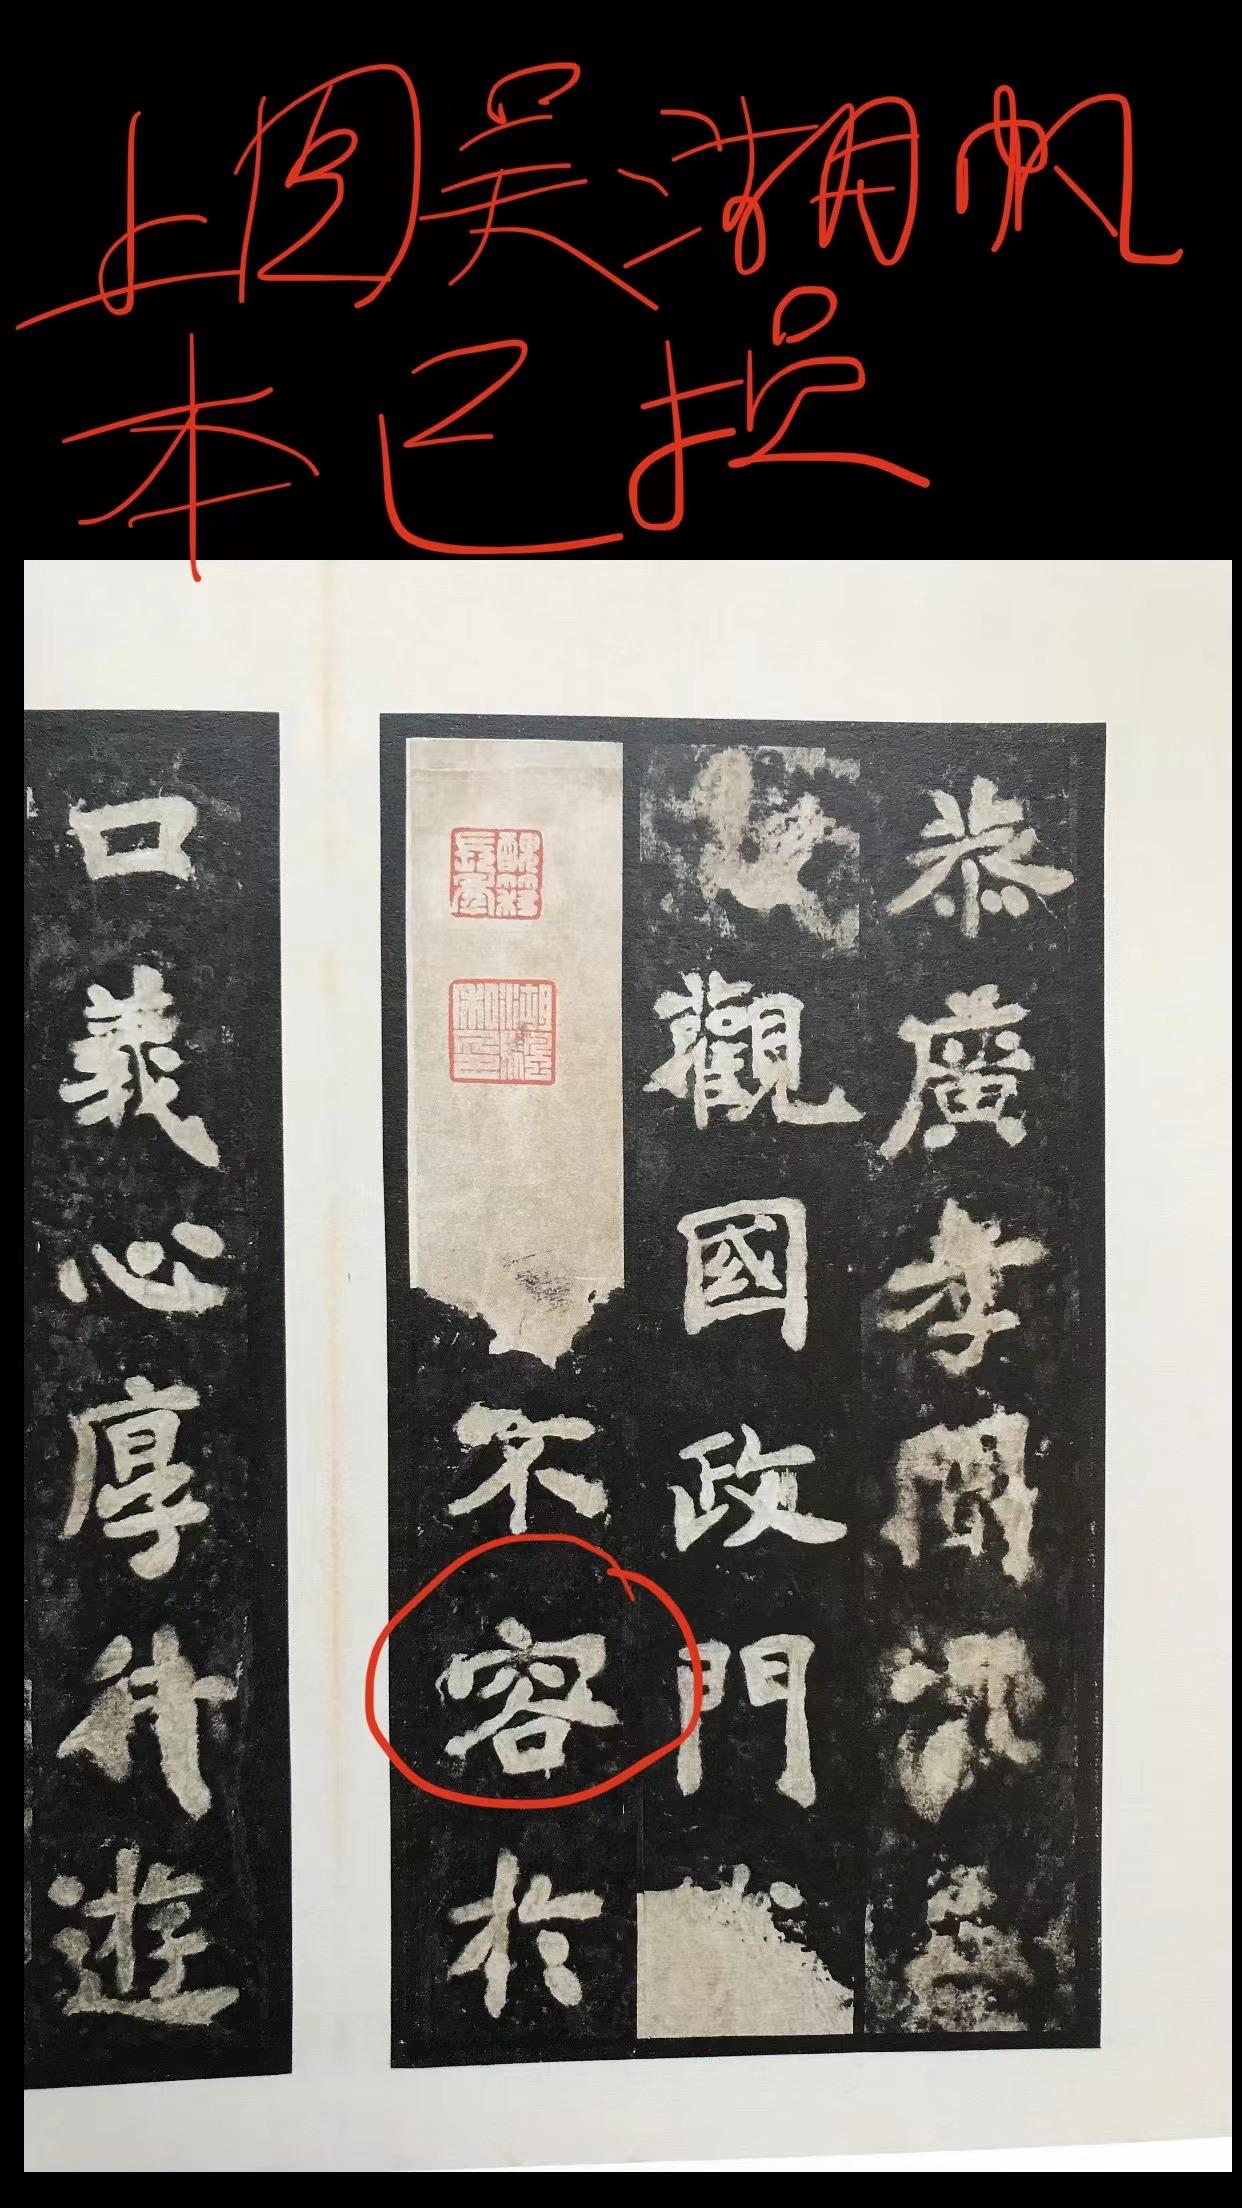 上图吴湖帆
本已损
恭廣孝聞
觀國政門
不容於
口義心厚待遊